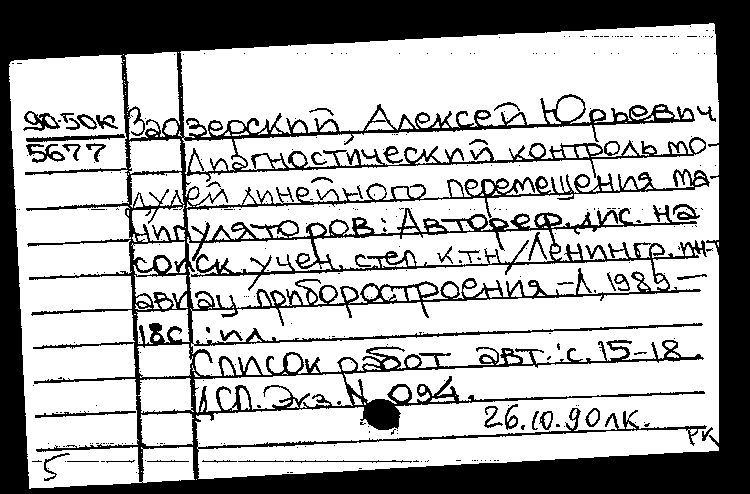 90-50к Заозерский, Алексей Юрьевич
5677 Диагностический контроль мо-
дулей линейного перемещения ма-
нипуляторов: Автореф. дис. на
соиск. учен. степ. к.т.н./Ленингр. ин-т
авиац. приборостроения.-Л., 1989.-
18с.: ил.
Список работ авт.: с. 15-18.
ДСП. Экз. N 094.
26.10.90лк.
РК
5